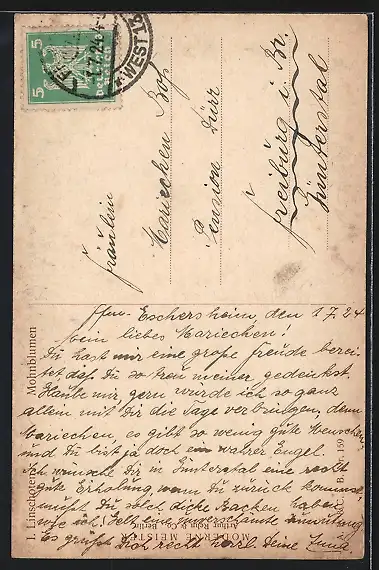 5 5
1.7.24
WEST 1
Fräulein
Mariechen Bop
Pension Dürr
Freiburg i. Br.
Günterstal
I. Linschoten Mohnblumen
MODERNE MEISTER
Arthur Rehn & Co., Berlin
159
Ffm-Eschersheim, den 1.7.24
Mein liebes Mariechen!
Du hast mir eine große Freude berei-
tet, daß Du so treu meiner gedenkst.
Glaube mir, gern würde ich so ganz
allein mit Dir die Tage verbringen, denn
Mariechen, es gibt so wenig gute Menschen
und Du bist ja doch ein wahrer Engel.
Ich wünsche Dir in Günterstal eine recht
gute Erholung, wenn Du zurück kommst,
mußt Du solch dicke Backen haben
wie ich! Gelt eine unverschämte Zumutung
Es grüßt Dich recht herzl. Deine